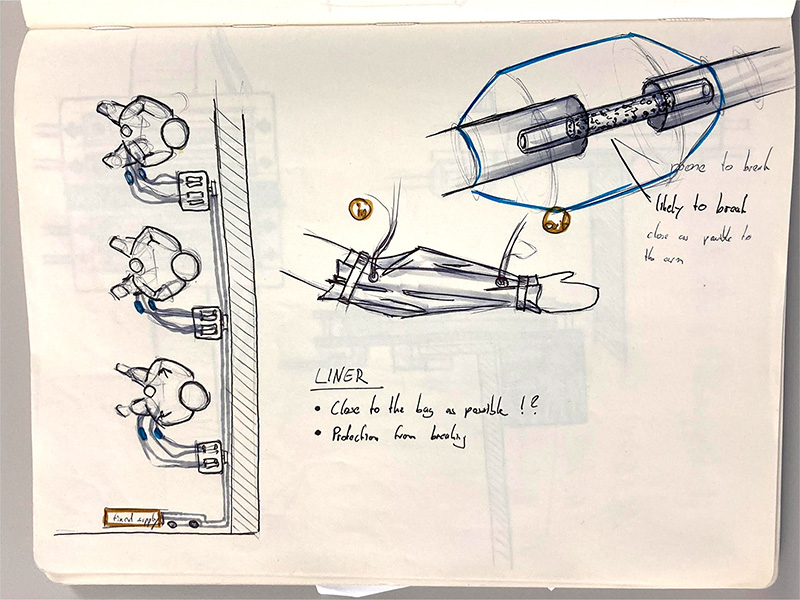 prone to break
likely to break
close as possible to
the arm
in
out
LINER
• Close to the bag as possible !?
• Protection from breaking
fixed supply